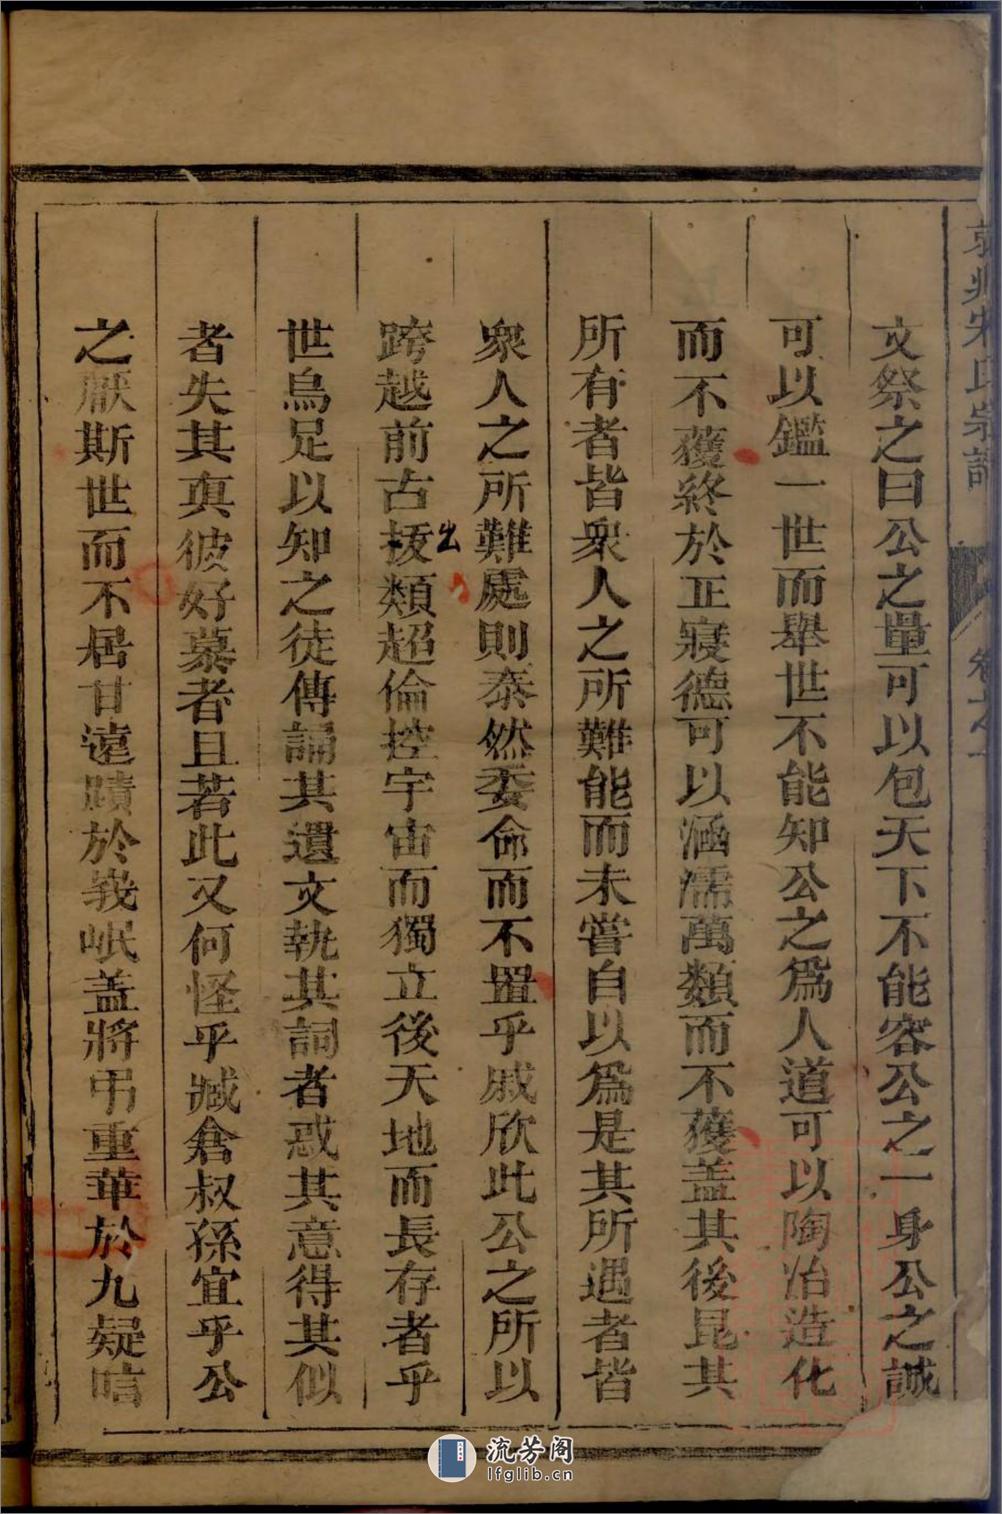 宋氏宗譜 卷之一
文祭之曰公之量可以包天下不能容公之一身公之誠
可以鑑一世而舉世不能知公之爲人道可以陶冶造化
而不獲終於正寢德可以涵濡萬類而不獲蓋其後昆其
所有者皆衆人之所難能而未嘗自以爲是其所遇者皆
衆人之所難處則泰然委命而不置乎戚欣此公之所以
跨越前古拔出類超倫控宇宙而獨立後天地而長存者乎
世烏足以知之徒傳誦其遺文執其詞者惑其意得其似
者失其眞彼好慕者且若此又何怪乎臧倉叔孫宜乎公
之厭斯世而不居甘遠蹟於峩岷蓋將弔重華於九疑
流芳阁
lfglib.cn